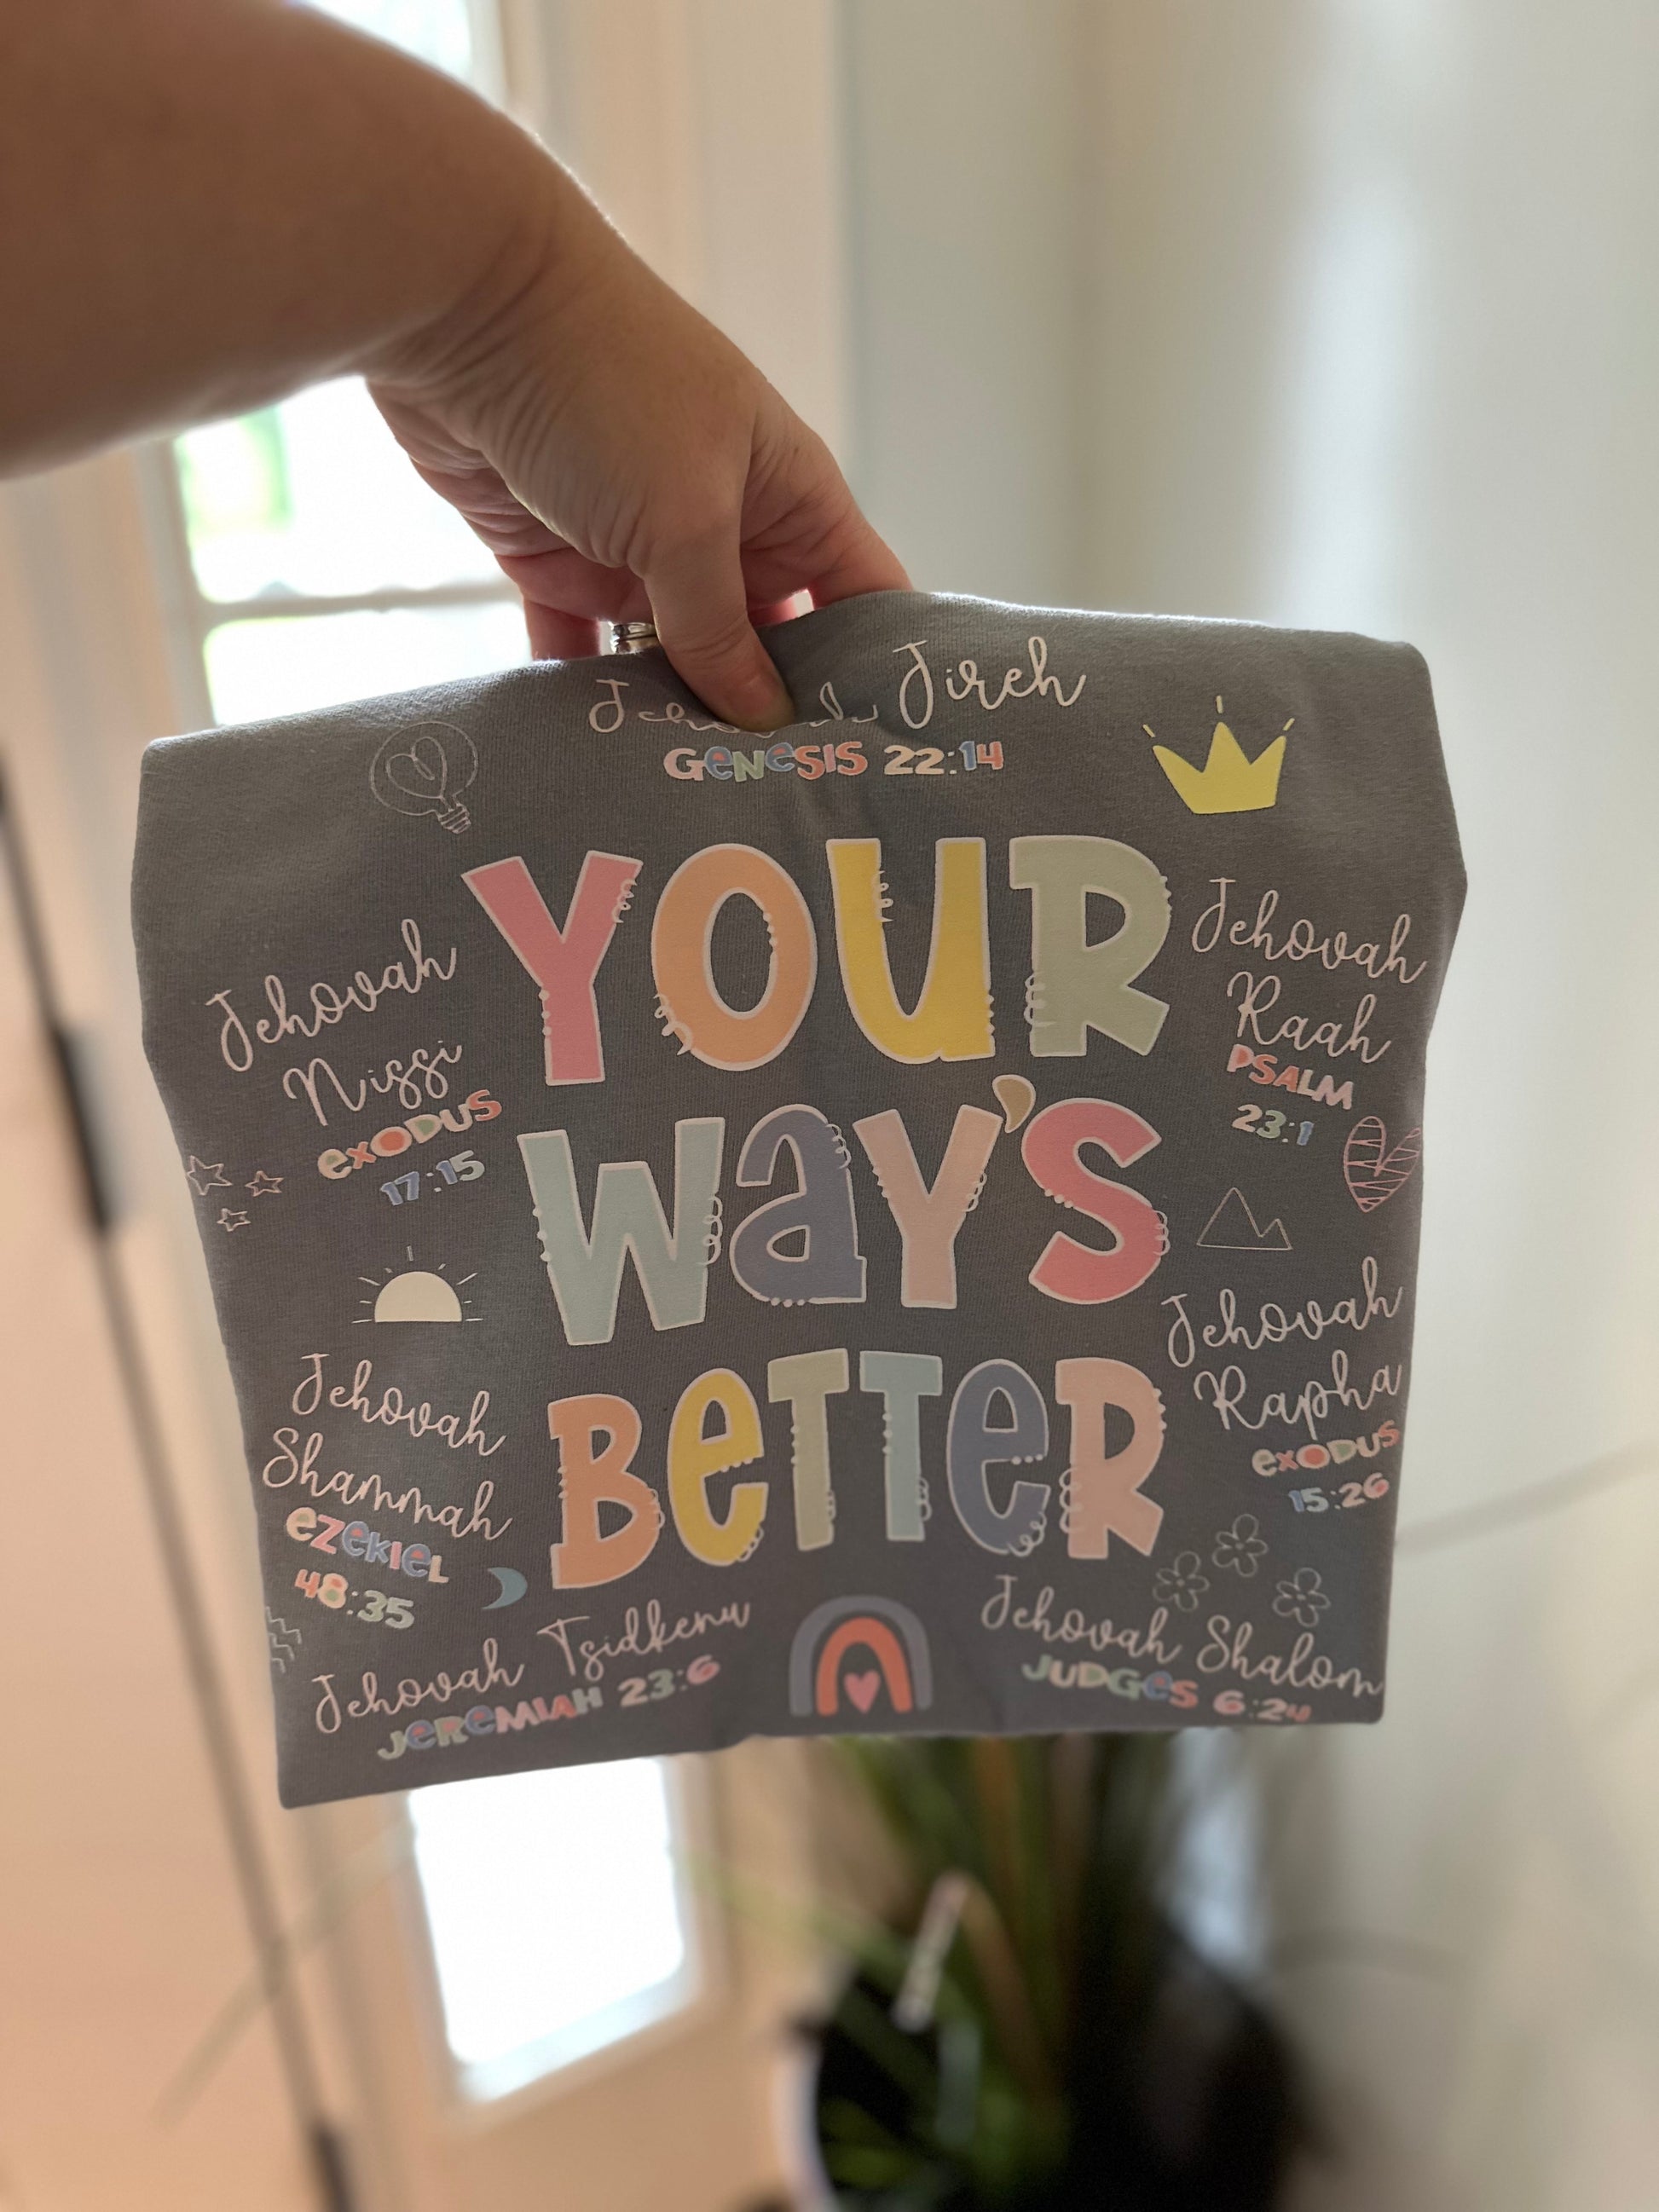 Jehovah Jireh
GENESIS 22:14
YOUR
WAY'S
BETTER
Jehovah
Nissi
EXODUS
17:15
Jehovah
Raah
PSALM
23:1
Jehovah
Shammah
EZEKIEL
48:35
Jehovah
Rapha
EXODUS
15:26
Jehovah Tsidkenu
JEREMIAH 23:6
Jehovah Shalom
JUDGES 6:24